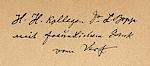 H. H. Kollegen Dr. L. Popp
mit freundlichem Dank
vom Verf.